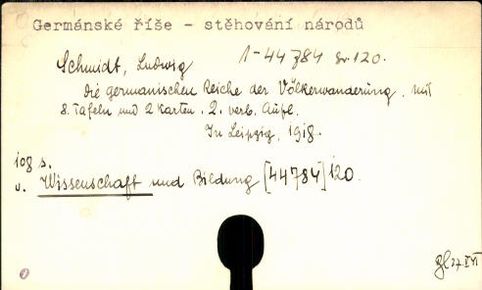 Germánské říše - stěhování národů
1-44784 sv 120.
Schmidt, Ludwig
Die germanischen Reiche der Völkerwanderung. mit
8 Tafeln und 2 Karten. 2. verb. Aufl.
In Leipzig, 1918.
108 s.
v. Wissenschaft und Bildung [44784] 120.